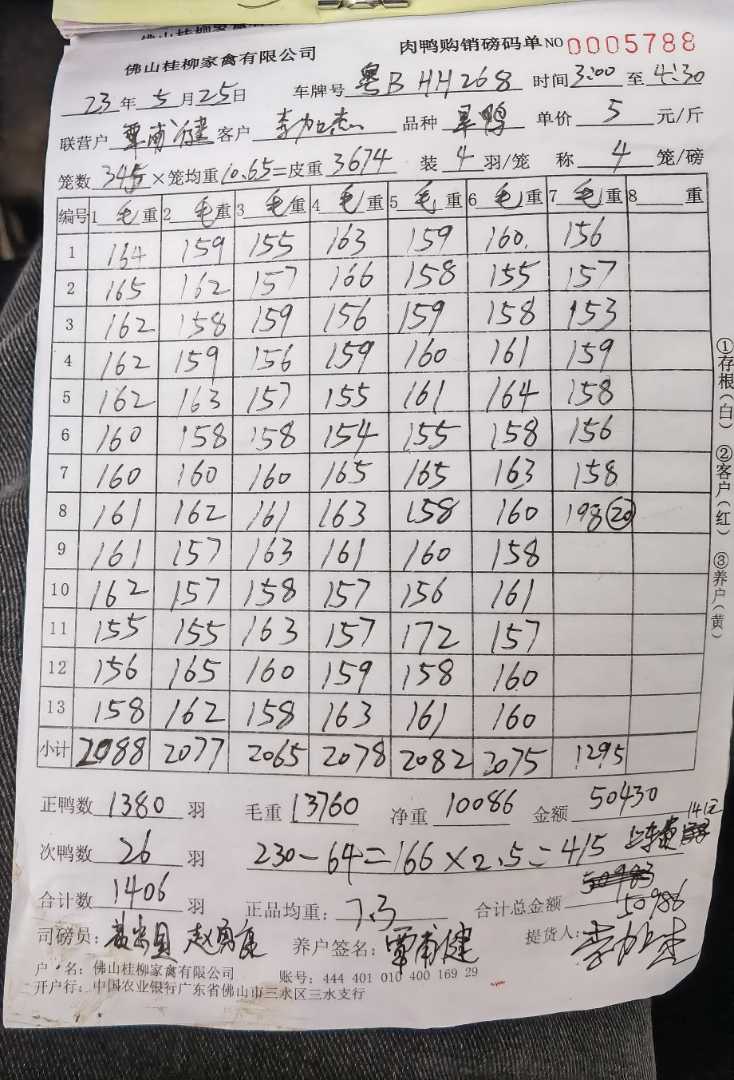 佛山桂柳家禽有限公司 肉鸭购销磅码单 NO 0005788
23年5月25日 车牌号 粤B HH268 时间 3:00 至 4:30
联营户 覃甫健 客户 李加杰 品种 单价 5 元/斤
笼数 345 ×笼均重 10.65 =皮重 3674 装 4 羽/笼 称 4 笼/磅
编号 1 毛重 2 毛重 3 毛重 4 毛重 5 毛重 6 毛重 7 毛重 8 重
1 164 159 155 163 159 160 156
2 165 162 157 166 158 155 157
3 162 158 159 156 159 158 153
4 162 159 156 159 160 161 159
5 162 163 157 155 161 164 158
6 160 158 158 154 155 158 156
7 160 160 160 165 165 163 158
8 161 162 161 163 158 160 198 20
9 161 157 163 161 160 158
10 162 157 158 157 156 161
11 155 155 163 157 172 157
12 156 165 160 159 158 160
13 158 162 158 163 161 160
小计 2088 2077 2065 2078 2082 2075 1295
正鸭数 1380 羽 毛重 13760 净重 10086 金额 50430
次鸭数 26 羽 230-64=166×2.5=415 上车费 141元
合计数 1406 羽 正品均重: 7.3 合计总金额 50986
司磅员: 赵勇良 养户签名: 覃甫健 提货人: 李加杰
户 名: 佛山桂柳家禽有限公司 账号: 444 401 010 400 169 29
开户行: 中国农业银行广东省佛山市三水区三水支行
①存根(白) ②客户(红) ③养户(黄)